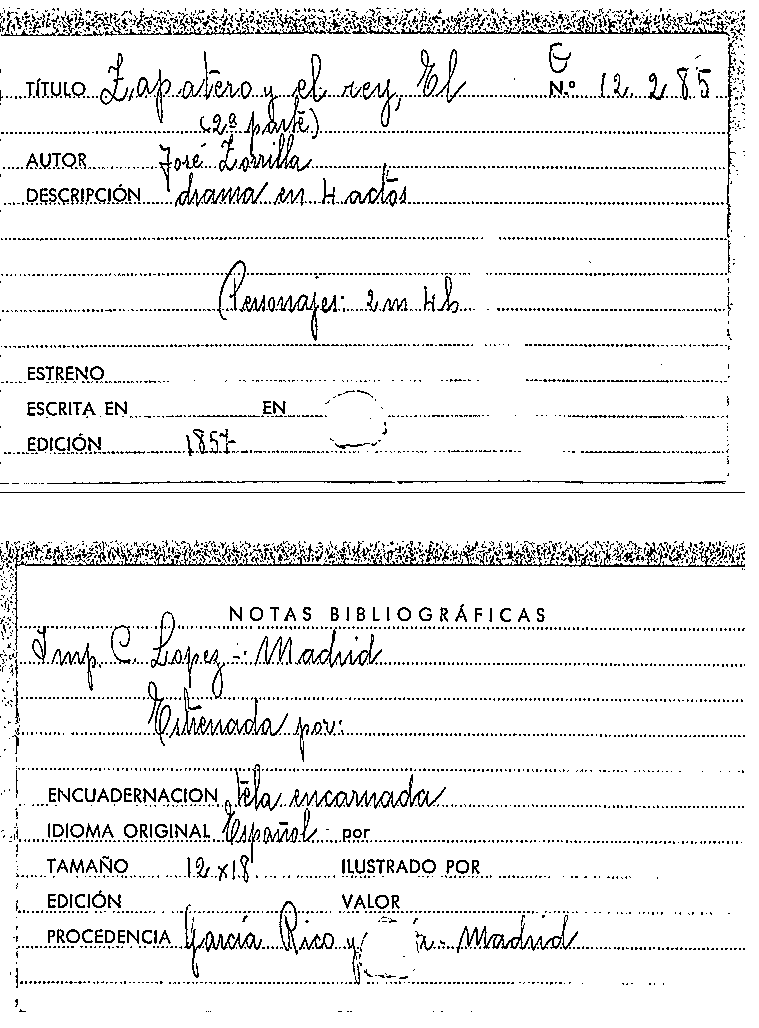 TÍTULO Zapatero y el rey, El N.º 12285
(2ª parte)
AUTOR José Zorrilla
DESCRIPCIÓN drama en 4 actos
Personajes: 2 m 4 h
ESTRENO
ESCRITA EN EN
EDICIÓN 1857
NOTAS BIBLIOGRÁFICAS
Imp. C. Lopez -: Madrid
Estrenada por:
ENCUADERNACION tela encarnada
IDIOMA ORIGINAL Español por
TAMAÑO 12x18 ILUSTRADO POR
EDICIÓN VALOR
PROCEDENCIA García Rico y Madrid